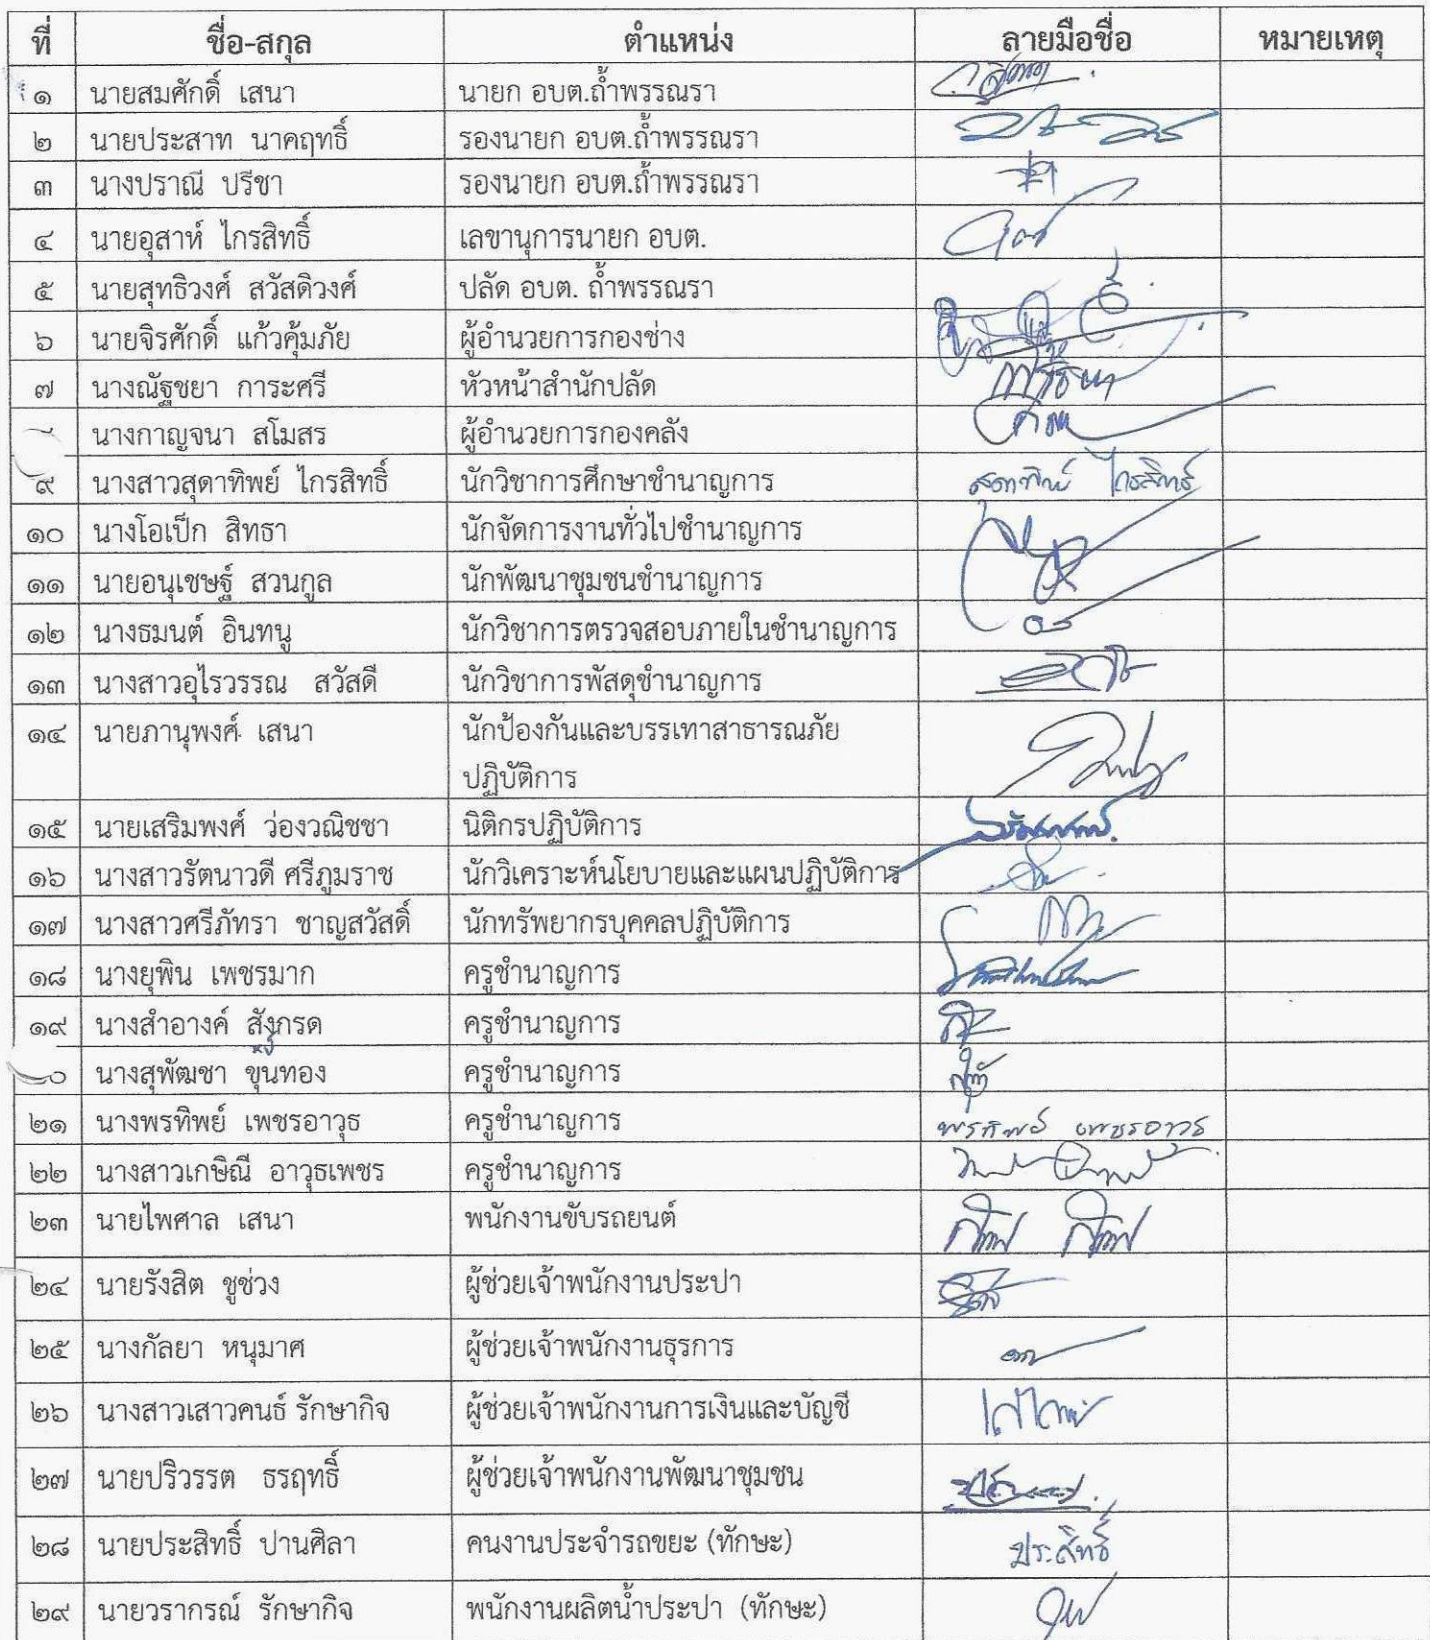 ที่ ชื่อ-สกุล ตำแหน่ง ลายมือชื่อ หมายเหตุ
๑ นายสมศักดิ์ เสนา นายก อบต.ถ้ำพรรณรา
๒ นายประสาท นาคฤทธิ์ รองนายก อบต.ถ้ำพรรณรา
๓ นางปราณี ปรีชา รองนายก อบต.ถ้ำพรรณรา
๔ นายอุสาห์ ไกรสิทธิ์ เลขานุการนายก อบต.
๕ นายสุทธิวงศ์ สวัสดิวงศ์ ปลัด อบต. ถ้ำพรรณรา
๖ นายจิรศักดิ์ แก้วคุ้มภัย ผู้อำนวยการกองช่าง
๗ นางณัฐชยา การะศรี หัวหน้าสำนักปลัด
นางกาญจนา สโมสร ผู้อำนวยการกองคลัง
๙ นางสาวสุดาทิพย์ ไกรสิทธิ์ นักวิชาการศึกษาชำนาญการ สุดาทิพย์ ไกรสิทธิ์
๑๐ นางโอเป็ก สิทธา นักจัดการงานทั่วไปชำนาญการ
๑๑ นายอนุเชษฐ์ สวนกูล นักพัฒนาชุมชนชำนาญการ
๑๒ นางธมนต์ อินทนู นักวิชาการตรวจสอบภายในชำนาญการ
๑๓ นางสาวอุไรวรรณ สวัสดี นักวิชาการพัสดุชำนาญการ
๑๔ นายภานุพงศ์ เสนา นักป้องกันและบรรเทาสาธารณภัย
ปฏิบัติการ
๑๕ นายเสริมพงศ์ ว่องวณิชชา นิติกรปฏิบัติการ
๑๖ นางสาวรัตนาวดี ศรีภูมราช นักวิเคราะห์นโยบายและแผนปฏิบัติการ
๑๗ นางสาวศรีภัทรา ชาญสวัสดิ์ นักทรัพยากรบุคคลปฏิบัติการ
๑๘ นางยุพิน เพชรมาก ครูชำนาญการ
๑๙ นางสำอางค์ สังกรด ครูชำนาญการ
๐ นางสุพัฒชา ขุนทอง ครูชำนาญการ
๒๑ นางพรทิพย์ เพชรอาวุธ ครูชำนาญการ พรทิพย์ เพชรอาวุธ
๒๒ นางสาวเกษิณี อาวุธเพชร ครูชำนาญการ
๒๓ นายไพศาล เสนา พนักงานขับรถยนต์
๒๔ นายรังสิต ชูช่วง ผู้ช่วยเจ้าพนักงานประปา
๒๕ นางกัลยา หนุมาศ ผู้ช่วยเจ้าพนักงานธุรการ
๒๖ นางสาวเสาวคนธ์ รักษากิจ ผู้ช่วยเจ้าพนักงานการเงินและบัญชี
๒๗ นายปริวรรต ธรฤทธิ์ ผู้ช่วยเจ้าพนักงานพัฒนาชุมชน
๒๘ นายประสิทธิ์ ปานศิลา คนงานประจำรถขยะ (ทักษะ) ประสิทธิ์
๒๙ นายวรากรณ์ รักษากิจ พนักงานผลิตน้ำประปา (ทักษะ)